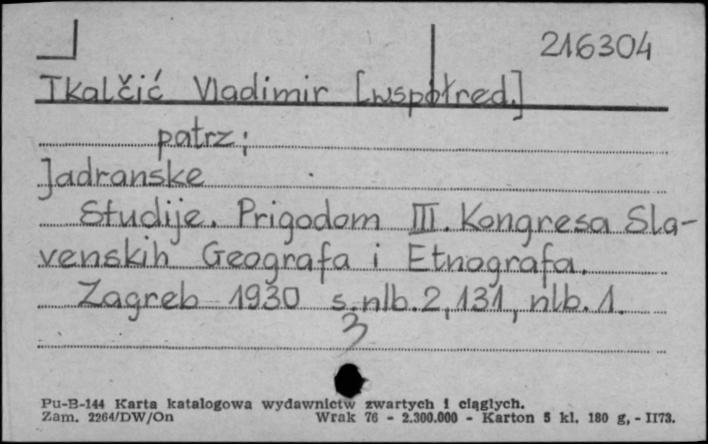 216304
Tkalčić Vladimir [współred.]
patrz:
Jadranske
Studije. Prigodom III. Kongresa Sla-
venskih Geografa i Etnografa.
Zagreb 1930 s. nlb. 2, 131, nlb. 1.
3
Pu-B-144 Karta katalogowa wydawnictw zwartych i ciągłych.
Zam. 2264/DW/On Wrak 76 - 2.300.000 - Karton 5 kl. 180 g, - II73.